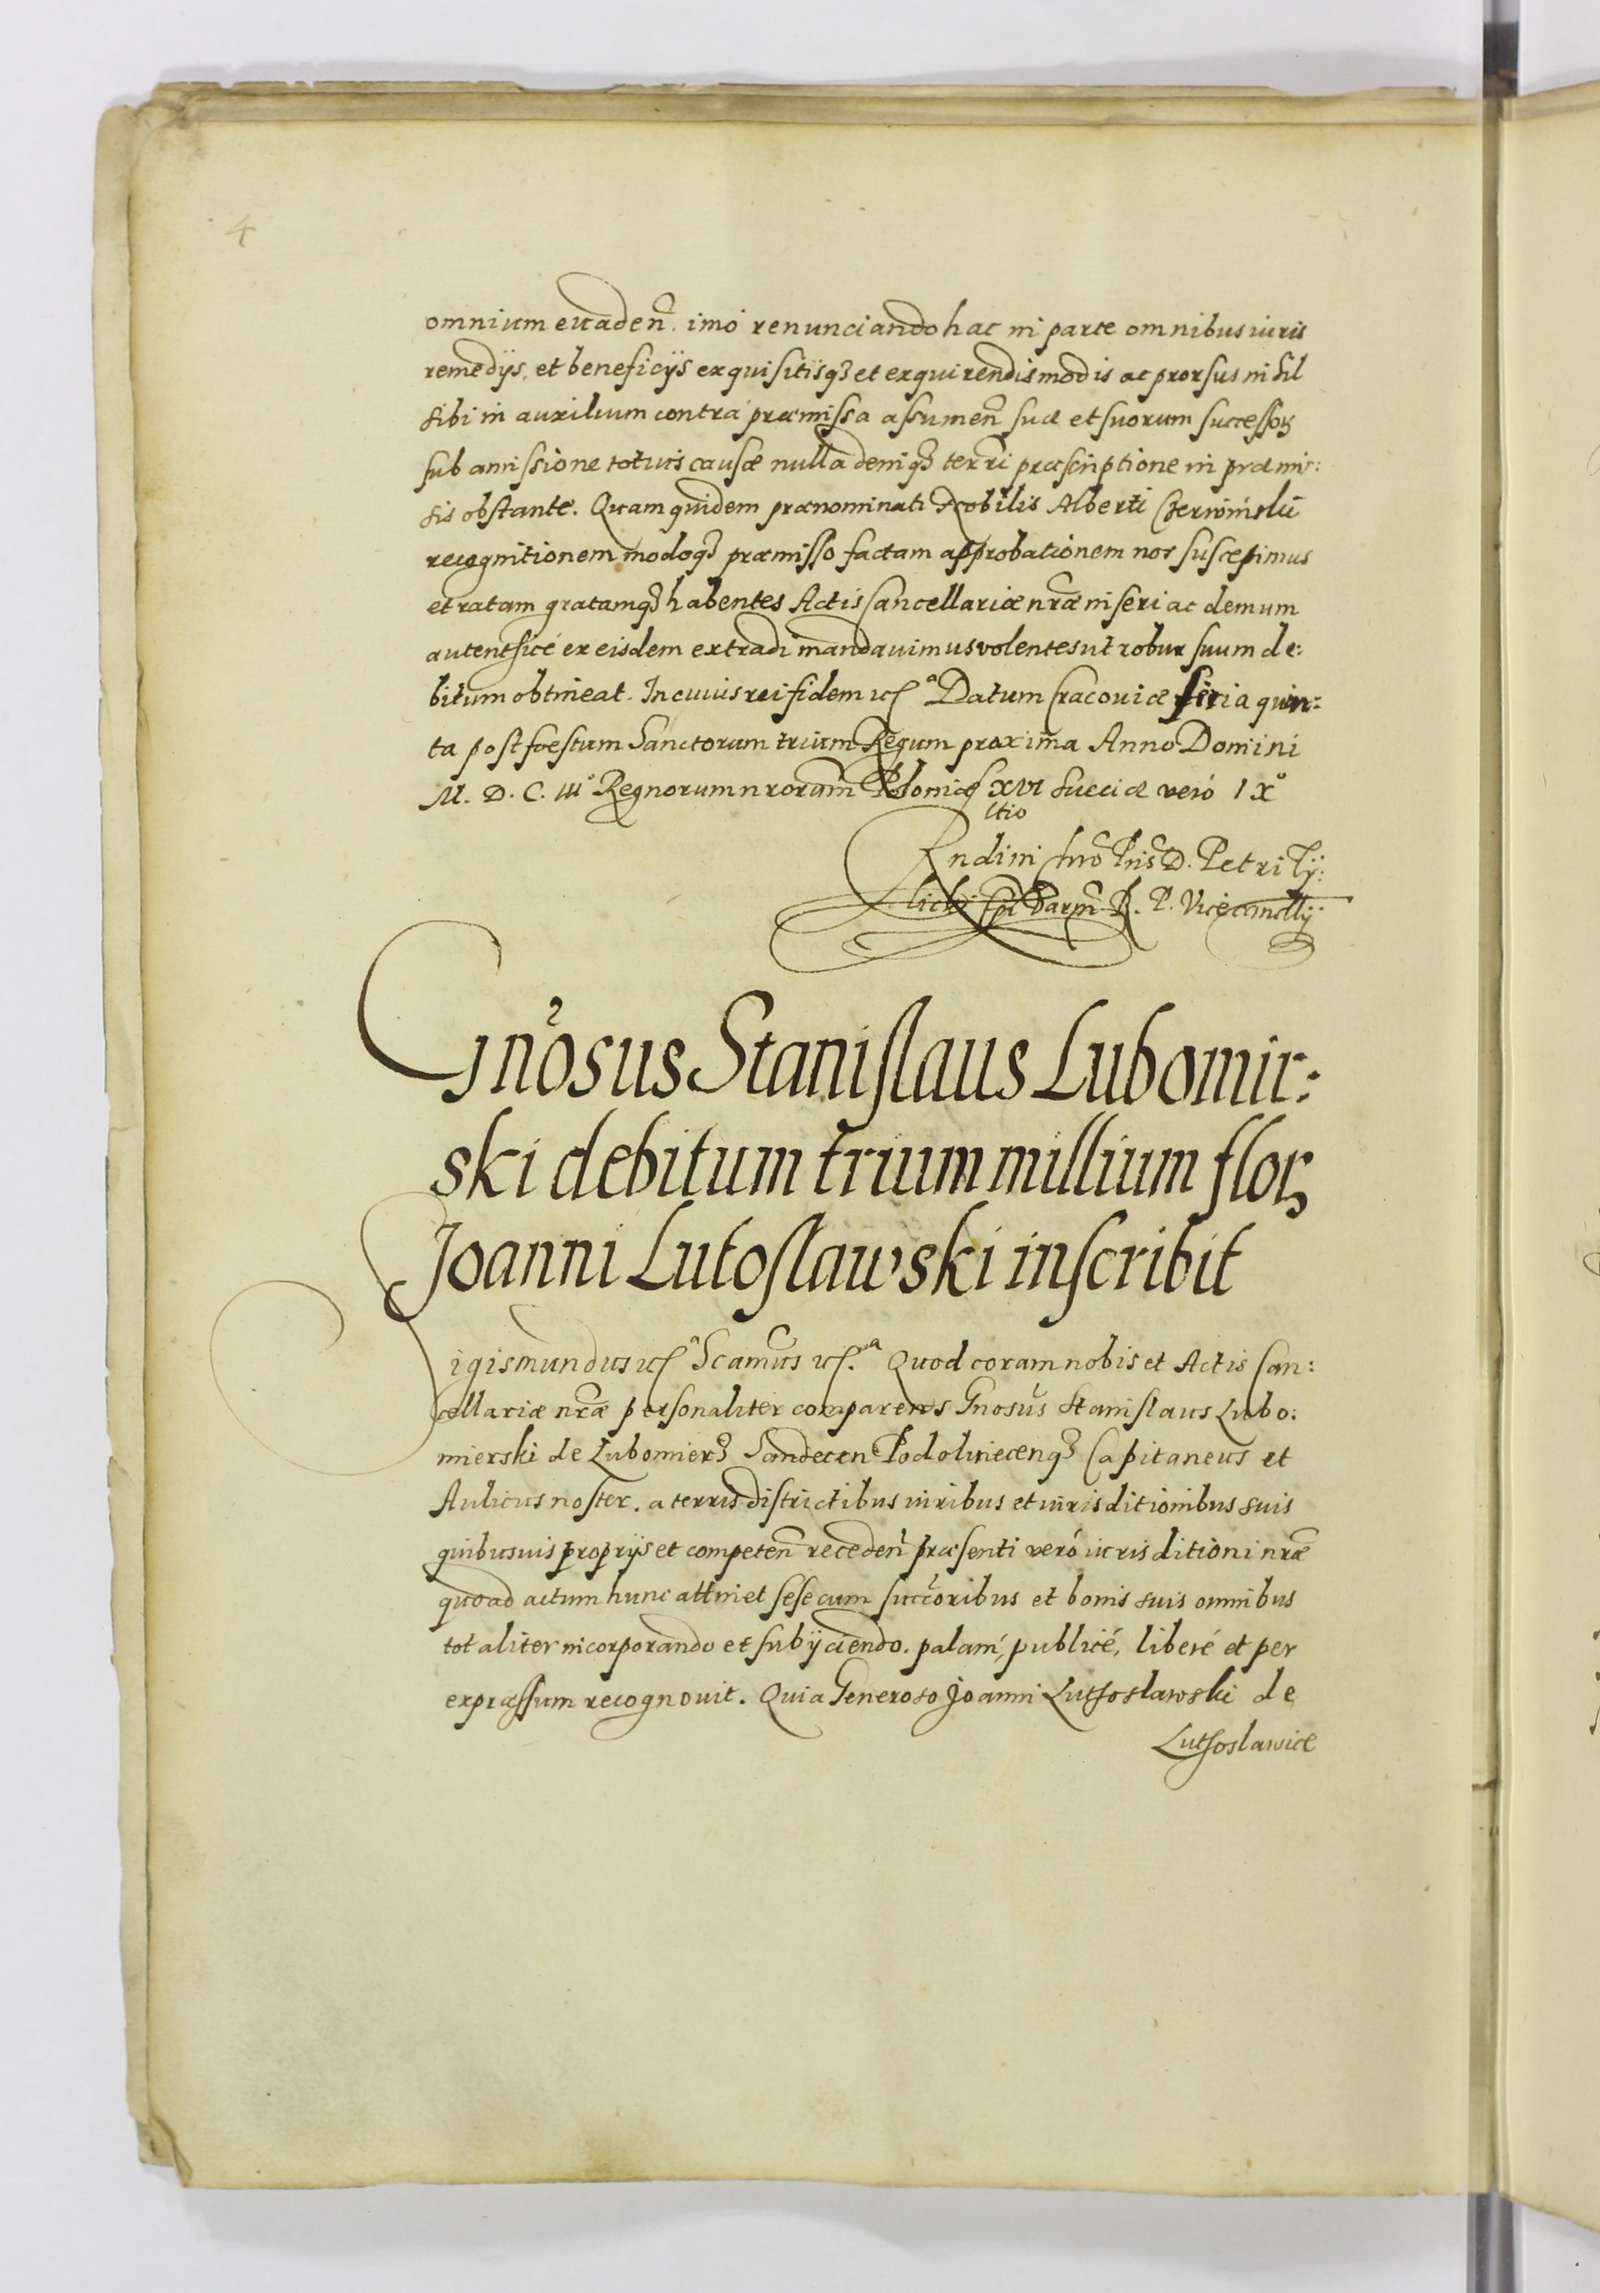 4
omnium evaden̄. imó renunciando hac in parte omnibus iuris
remedijs, et beneficijs exquisitisq3 et exquirendis modis ac prorsus nihil
sibi in auxilium contrá præmissa assumen̄ suæ et suorum successoꝝ
sub amissione totius causæ nulla deniq3 terr̄i præscriptione in præmis:
sis obstante. Quam quidem prænominati Nobilis Alberti Czerwiński
recognitionem modoq3 præmisso factam approbationem nos suscepimus
et ratam gratamq3 habentes Actis Cancellariæ nr̄æ inseri ac demum
autenthicé ex eisdem extradi mandavimus volentes ut robur suum de:
bitum obtineat. In cuius rei fidem etc̄ᵃ Datum Cracoviæ feria quin:
ta post foestum Sanctorum trium Regum proxima Anno Domini
M. D. C. IIIº Regnorum nrorum Poloniæ XVI Sueciæ veró IXº
Rndini Chro Pris D. Petri Ty:
licki Epi Varm̄ R. P. Vicecancllij
Gn̄osus Stanislaus Lubomir:
ski debitum trium millium floꝝ
Joanni Lutoslawski inscribit
Sigismundus etc̄ᵃ Scamus etc̄.ᵃ Quod coram nobis et Actis Can:
cellariæ nr̄æ personaliter comparens Gnosus Stanislaus Lubo:
mierski de Lubomierz Sandecen Podolinecenq3 Capitaneus et
Aulicus noster. a terris districtibus iuribus et iurisditionibus suis
quibusuis proprijs et competen̄ receden̄ præsenti veró iurisditioni nr̄æ
quoad actum hunc attinet sese cum succ̄oribus et bonis suis omnibus
totaliter incorporando et subijciendo. palam, publicé, liberé et per
expræssum recognovit. Quia Generoso Joanni Luthoslawski de
Luthoslawice